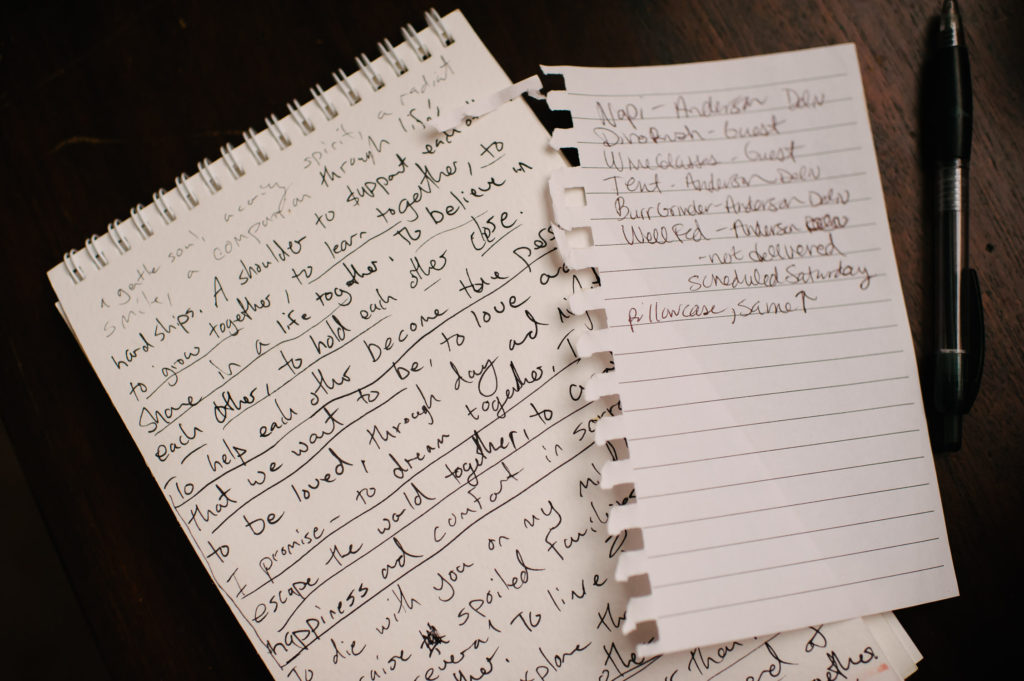 a gentle soul, a caring spirit, a radiant
smile, a companion through life's
hardships. A shoulder to support each
to grow together, to learn together, to
share in a life together. To believe in
each other, to hold each other close.
To help each other become the
that we want to be, to love and
to be loved, through day and
I promise - to dream together,
escape the world together, to
happiness and comfort in
To die with you on my
raise spoiled
several To live
explore the
than
together.
Napi - Anderson Delv
DinoRush - Guest
Wineglasses - Guest
Tent - Anderson Delv
Burr Grinder - Anderson Delv
Wellfed - Anderson
- not delivered
scheduled Saturday
pillowcase, same ↑